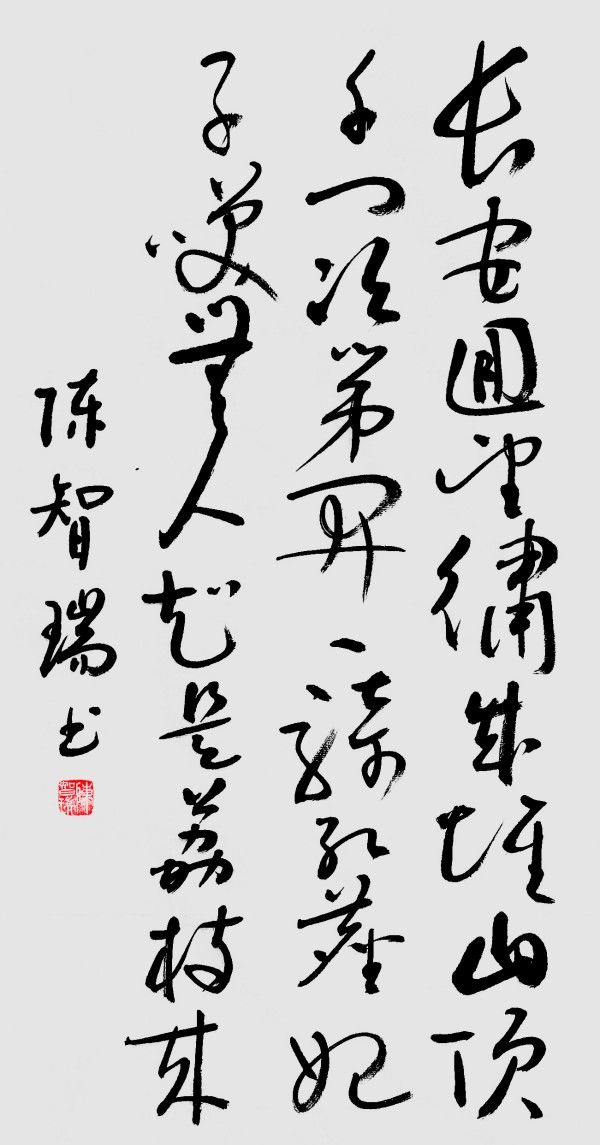 长安回望绣成堆山顶
千门次第开一骑红塵妃
子笑無人知是荔枝来
陈智瑞书